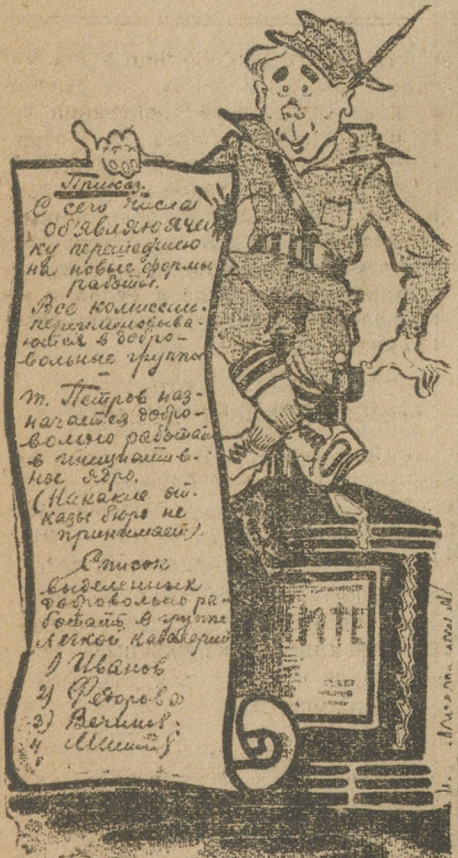 Приказ.
С сего числа
об'являю ячей
ку перешедшею
на новые формы
работы.
Все комиссии
переименовыва-
ются в добро-
вольные группы
т. Петров наз-
начается добро-
вольно работать
в инициатив-
ное ядро.
(Никакие от-
казы бюро не
принимает)
Список
выделенных
добровольно ра-
ботать в группе
легкой кавалерии
1) Иванов
2) Федорова
3)
4